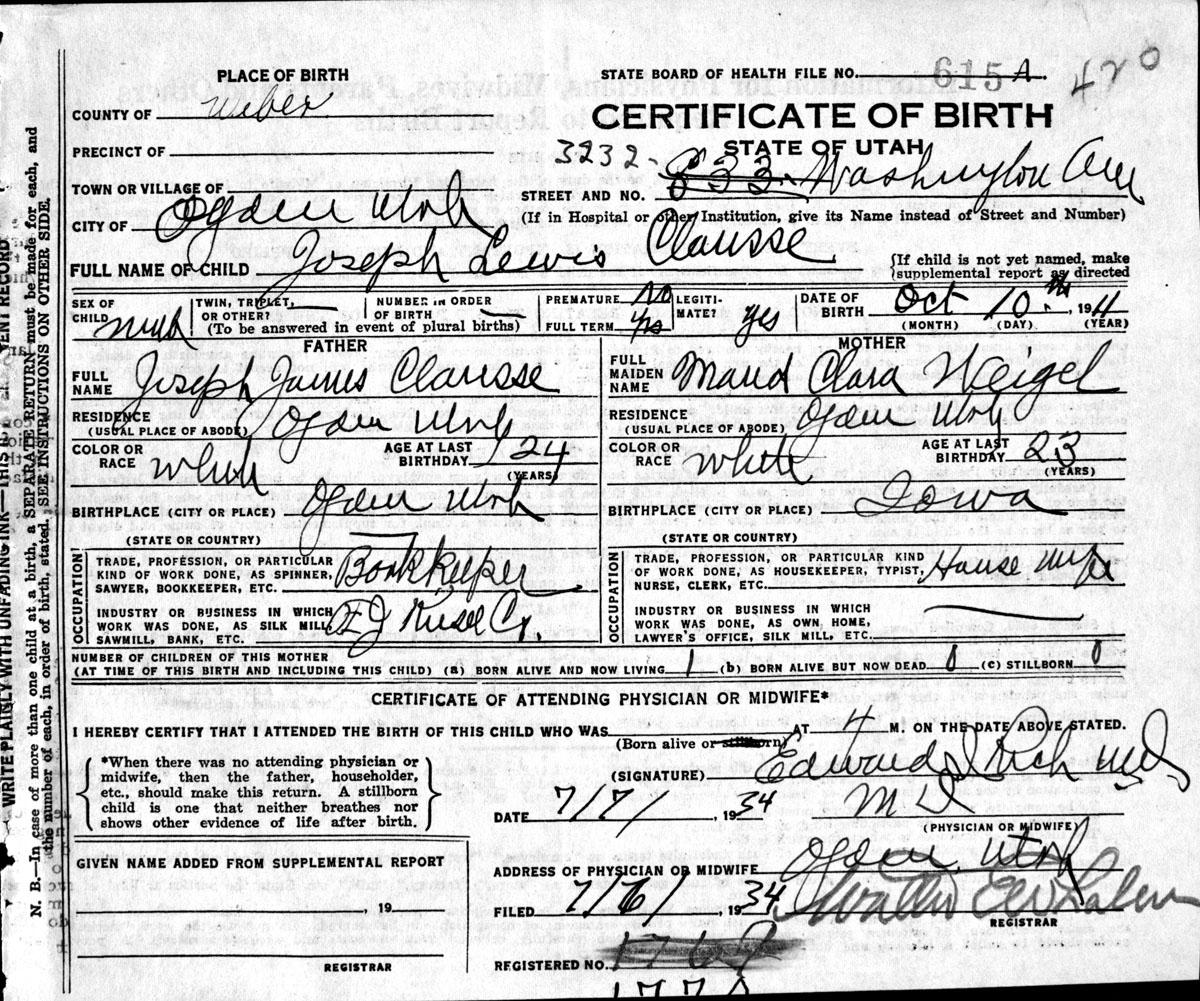 PLACE OF BIRTH
STATE BOARD OF HEALTH FILE NO. 615 A. 420
COUNTY OF Weber
CERTIFICATE OF BIRTH
PRECINCT OF
STATE OF UTAH
TOWN OR VILLAGE OF
STREET AND NO. 3232- 833 Washington Ave
CITY OF Ogden Utah
(If in Hospital or other Institution, give its Name instead of Street and Number)
FULL NAME OF CHILD Joseph Lewis Clausse
{If child is not yet named, make
supplemental report as directed
SEX OF CHILD male
TWIN, TRIPLET, OR OTHER?
NUMBER IN ORDER OF BIRTH
(To be answered in event of plural births)
PREMATURE No
FULL TERM Yes
LEGITIMATE? yes
DATE OF BIRTH Oct 10th, 1911
(MONTH) (DAY) (YEAR)
FATHER
MOTHER
FULL NAME Joseph James Clausse
FULL MAIDEN NAME Maud Clara Weigel
RESIDENCE Ogden Utah
(USUAL PLACE OF ABODE)
RESIDENCE Ogden Utah
(USUAL PLACE OF ABODE)
COLOR OR RACE White
AGE AT LAST BIRTHDAY 24
(YEARS)
COLOR OR RACE White
AGE AT LAST BIRTHDAY 23
(YEARS)
BIRTHPLACE (CITY OR PLACE) Ogden Utah
(STATE OR COUNTRY)
BIRTHPLACE (CITY OR PLACE) Iowa
(STATE OR COUNTRY)
OCCUPATION
TRADE, PROFESSION, OR PARTICULAR
KIND OF WORK DONE, AS SPINNER,
SAWYER, BOOKKEEPER, ETC. Bookkeeper
INDUSTRY OR BUSINESS IN WHICH
WORK WAS DONE, AS SILK MILL,
SAWMILL, BANK, ETC.
OCCUPATION
TRADE, PROFESSION, OR PARTICULAR KIND
OF WORK DONE, AS HOUSEKEEPER, TYPIST,
NURSE, CLERK, ETC. House wife
INDUSTRY OR BUSINESS IN WHICH
WORK WAS DONE, AS OWN HOME,
LAWYER'S OFFICE, SILK MILL, ETC.
NUMBER OF CHILDREN OF THIS MOTHER
(AT TIME OF THIS BIRTH AND INCLUDING THIS CHILD) (a) BORN ALIVE AND NOW LIVING 1 (b) BORN ALIVE BUT NOW DEAD 0 (c) STILLBORN 0
CERTIFICATE OF ATTENDING PHYSICIAN OR MIDWIFE*
I HEREBY CERTIFY THAT I ATTENDED THE BIRTH OF THIS CHILD WHO WAS AT 4 M. ON THE DATE ABOVE STATED.
(Born alive or stillborn)
*When there was no attending physician or
midwife, then the father, householder,
etc., should make this return. A stillborn
child is one that neither breathes nor
shows other evidence of life after birth.
(SIGNATURE) Edward I Rich MD
DATE 7/7/, 1934 MD
(PHYSICIAN OR MIDWIFE)
GIVEN NAME ADDED FROM SUPPLEMENTAL REPORT
ADDRESS OF PHYSICIAN OR MIDWIFE Ogden, Utah
, 19
FILED 7/6/, 1934 Walter E Whalen
REGISTRAR
REGISTRAR
REGISTERED NO. 1769
WRITE PLAINLY WITH UNFADING INK—THIS IS
N. B.—In case of more than one child at a birth, a SEPARATE RETURN must be made for each, and
the number of each, in order of birth, stated. SEE INSTRUCTIONS ON OTHER SIDE.